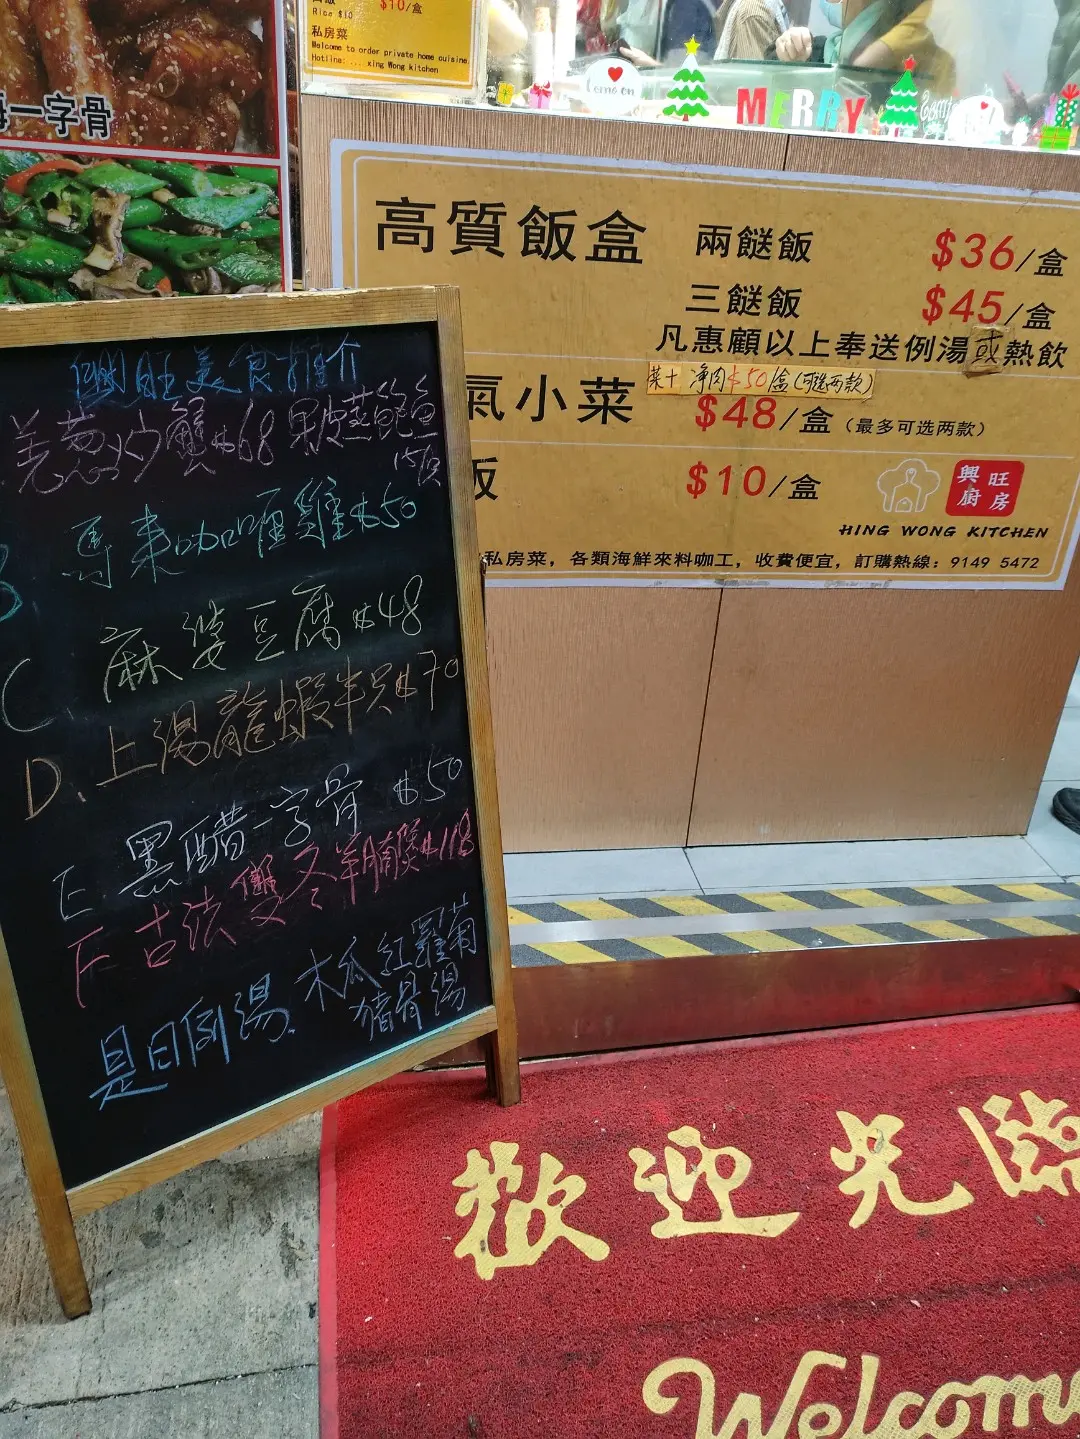 $10/盒
Rice $10
私房菜
Welcome to order private home cuisine,
Hotline: ... xing Wong kitchen
Come on
MERRY
一字骨
高質飯盒
兩餸飯 $36/盒
三餸飯 $45/盒
凡惠顧以上奉送例湯或熱飲
菜+淨肉$50/盒(可選两款)
氣小菜 $48/盒(最多可选两款)
飯 $10/盒
興旺
廚房
HING WONG KITCHEN
私房菜，各類海鮮來料咖工，收費便宜，訂購熱線：9149 5472
興旺美食推介
羌葱炒蟹$68 果皮蒸鮑魚
B 馬来咖喱雞$50
C. 麻婆豆腐$48
D. 上湯龍蝦半只$70
E 黑醋一字骨 $50
F 古法雙冬羊腩煲$118
是日例湯. 木瓜紅蘿蔔
豬骨湯
歡迎光臨
Welcom